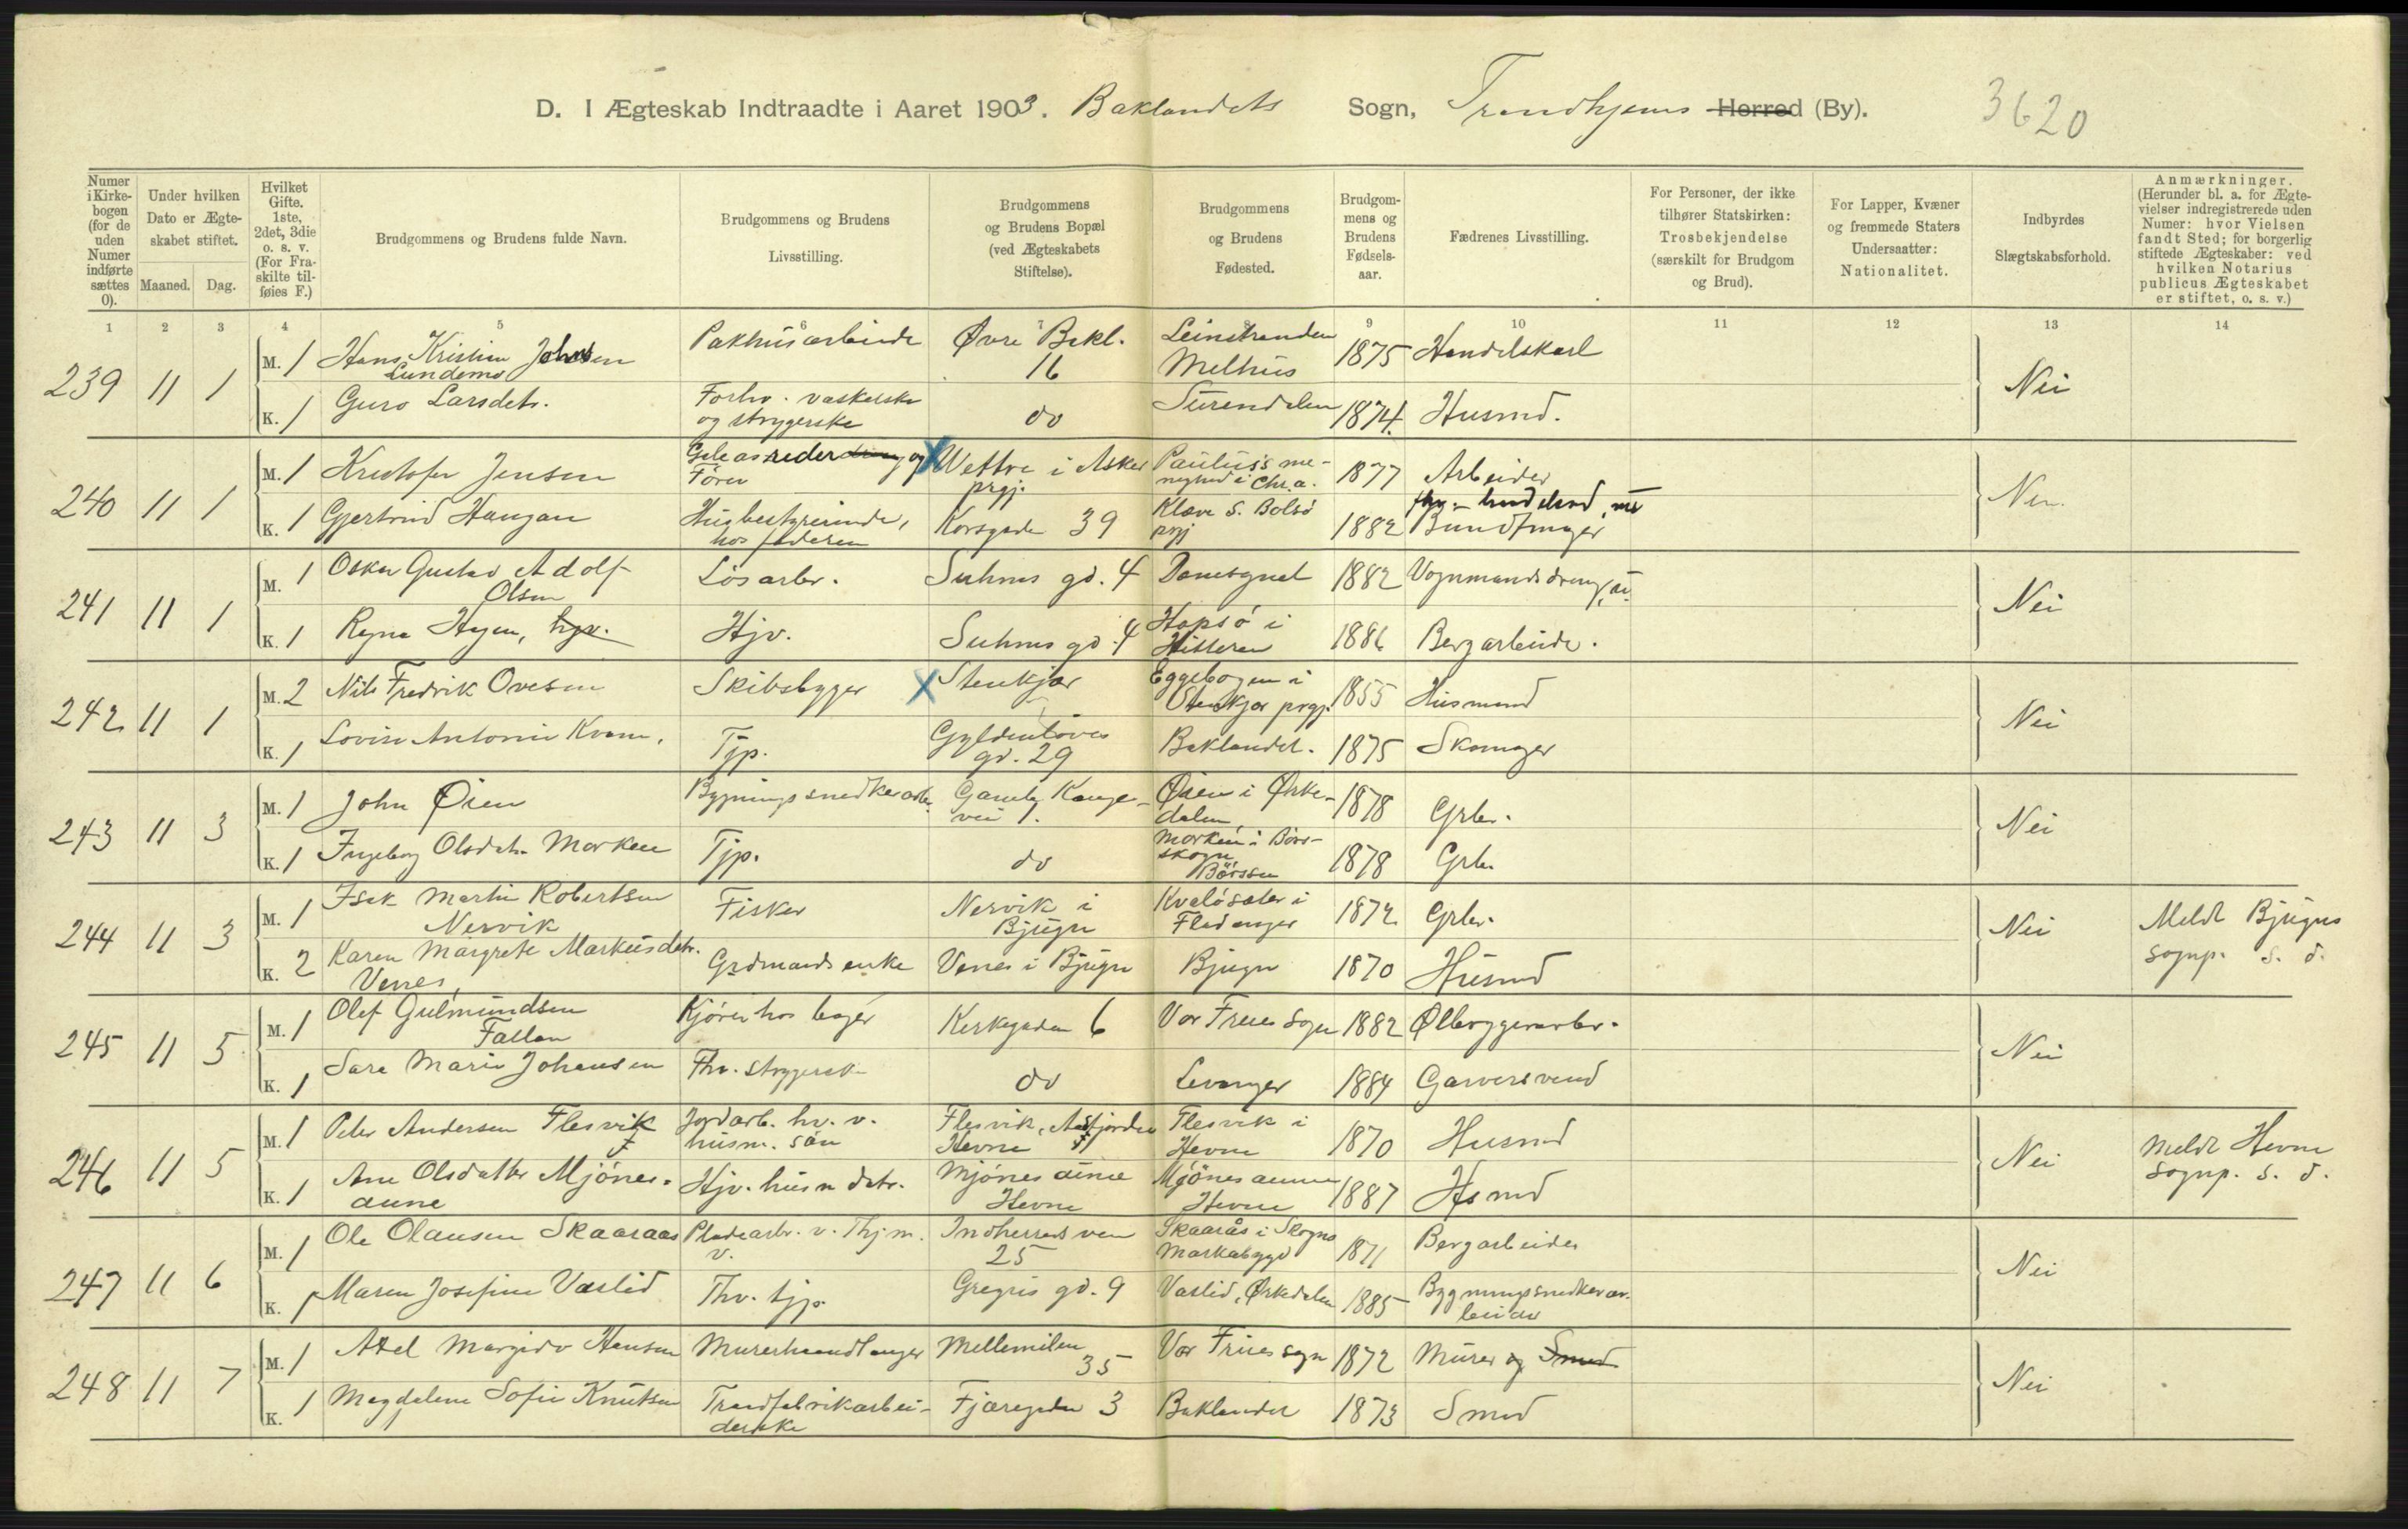 D. I Ægteskab Indtraadte i Aaret 1903. Baklandets Sogn, Trondhjems Herred (By). 3620
Numer i Kirkebogen (for de uden Numer indførte sættes 0).
Under hvilken Dato er Ægteskabet stiftet.
Maaned. Dag.
Hvilket Gifte. 1ste, 2det, 3die o. s. v. (For Fraskilte tilføies F.)
Brudgommens og Brudens fulde Navn.
Brudgommens og Brudens Livsstilling.
Brudgommens og Brudens Bopæl (ved Ægteskabets Stiftelse).
Brudgommens og Brudens Fødested.
Brudgommens og Brudens Fødselsaar.
Fædrenes Livsstilling.
For Personer, der ikke tilhører Statskirken: Trosbekjendelse (særskilt for Brudgom og Brud).
For Lapper, Kvæner og fremmede Staters Undersaatter: Nationalitet.
Indbyrdes Slægtskabsforhold.
Anmærkninger. (Herunder bl. a. for Ægtevielser indregistrerede uden Numer: hvor Vielsen fandt Sted; for borgerlig stiftede Ægteskaber: ved hvilken Notarius publicus Ægteskabet er stiftet, o. s. v.)
1 2 3 4 5 6 7 8 9 10 11 12 13 14
239 11 1 M. 1 Hans Kristian Johnsen Lundemo Pakhusarbeide Øvre Bakl. 16 Leinstranden Melhus 1875 Handelskarl Nei
K. 1 Guro Larsdatr. Forhv. vaskerske og strygerske do Surendalen 1874 Husmd.
240 11 1 M. 1 Kristofer Jensen Galeasreder og Fører X Wettre i Asker prgj. Paulus's menighed i Chr.a. 1877 Arbeider
K. 1 Gjertrud Haugan Husbestyrerinde, hos faderen Korsgade 39 Kleve S. Bolsø prgj 1882 Bundtmager
241 11 1 M. 1 Oskar Gustav Adolf Olsen Løsarbr. Suhms gd. 4 Domsognet 1882 Vognmandsdreng Nei
K. 1 Regna Hagen, hjv. Hjv. Suhms gd. 4 Hopsø i Hitteren 1886 Bergarbeide.
242 11 1 M. 2 Nils Fredrik Ovesen Skibsbygger X Stenkjær Eggebogen i Stenkjær prgj. 1855 Husmand Nei
K. 1 Lovise Antonie Kvam. Tjp. Gyldenløves gd. 29 Baklandet. 1875 Skomager
243 11 3 M. 1 John Øien Bygningssnedkerarb. Gamle Kongevei 1. Øien i Ørkedalen 1878 Grbr. Nei
K. 1 Ingeborg Olsdatr. Morken Tjp. do Morken i Børsskogn Børssen 1878 Grbr.
244 11 3 M. 1 Isak Martin Robertsen Nervik Fisker Nervik i Bjugn Kvaløsæter i Fladanger 1872 Grbr. Nei Meldt Bjugns sognp. s. d.
K. 2 Karen Margrete Markusdatr. Venes Grdmands enke Venes i Bjugn Bjugn 1870 Husmd
245 11 5 M. 1 Olef Gulmundsen Fallan Kjører hos bager Kirkegaden 6 Vor Frues sogn 1882 Ølbryggerarbr. Nei
K. 1 Sara Marie Johansen Fhv. strygersk. do Levanger 1884 Garversvend
246 11 5 M. 1 Peter Andersen Flesvik Jordarb. hv. v. husm. søn Flesvik, Hevne Flesvik i Hevne 1870 Husmd Nei Meldt Hevne sognp. s. d.
K. 1 Ane Olsdatter Mjønesaune Hjv. husm datr. Mjønesaune Hevne Mjønesaune Hevne 1887 Hsmd
247 11 6 M. 1 Ole Olausen Skaaraas Pladearbr. v. Thj m. v. Indherredsveien 25 Skaarås i Skogns Markabygd 1871 Bergarbeider Nei
K. 1 Maren Josefine Vaslid Fhv. tjp. Gregus gd. 9 Vaslid, Ørkedalen 1885 Bygningssnedkerarbeider
248 11 7 M. 1 Axel Margido Hansen Murerhaandlanger Mellemilen 35 Vor Frues sogn 1872 Murer og Smed Nei
K. 1 Magdalene Sofie Knutsen Traadfabrikarbeiderske Fjæregaden 3 Baklandet 1873 Smed